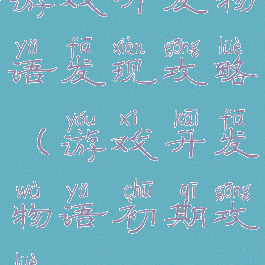 游戏开发物
yǔ fā xiàn gōng lüè
语发现攻略
yóu xì kāi fā
(游戏开发
wù yǔ chū qī gōng
物语初期攻
lüè